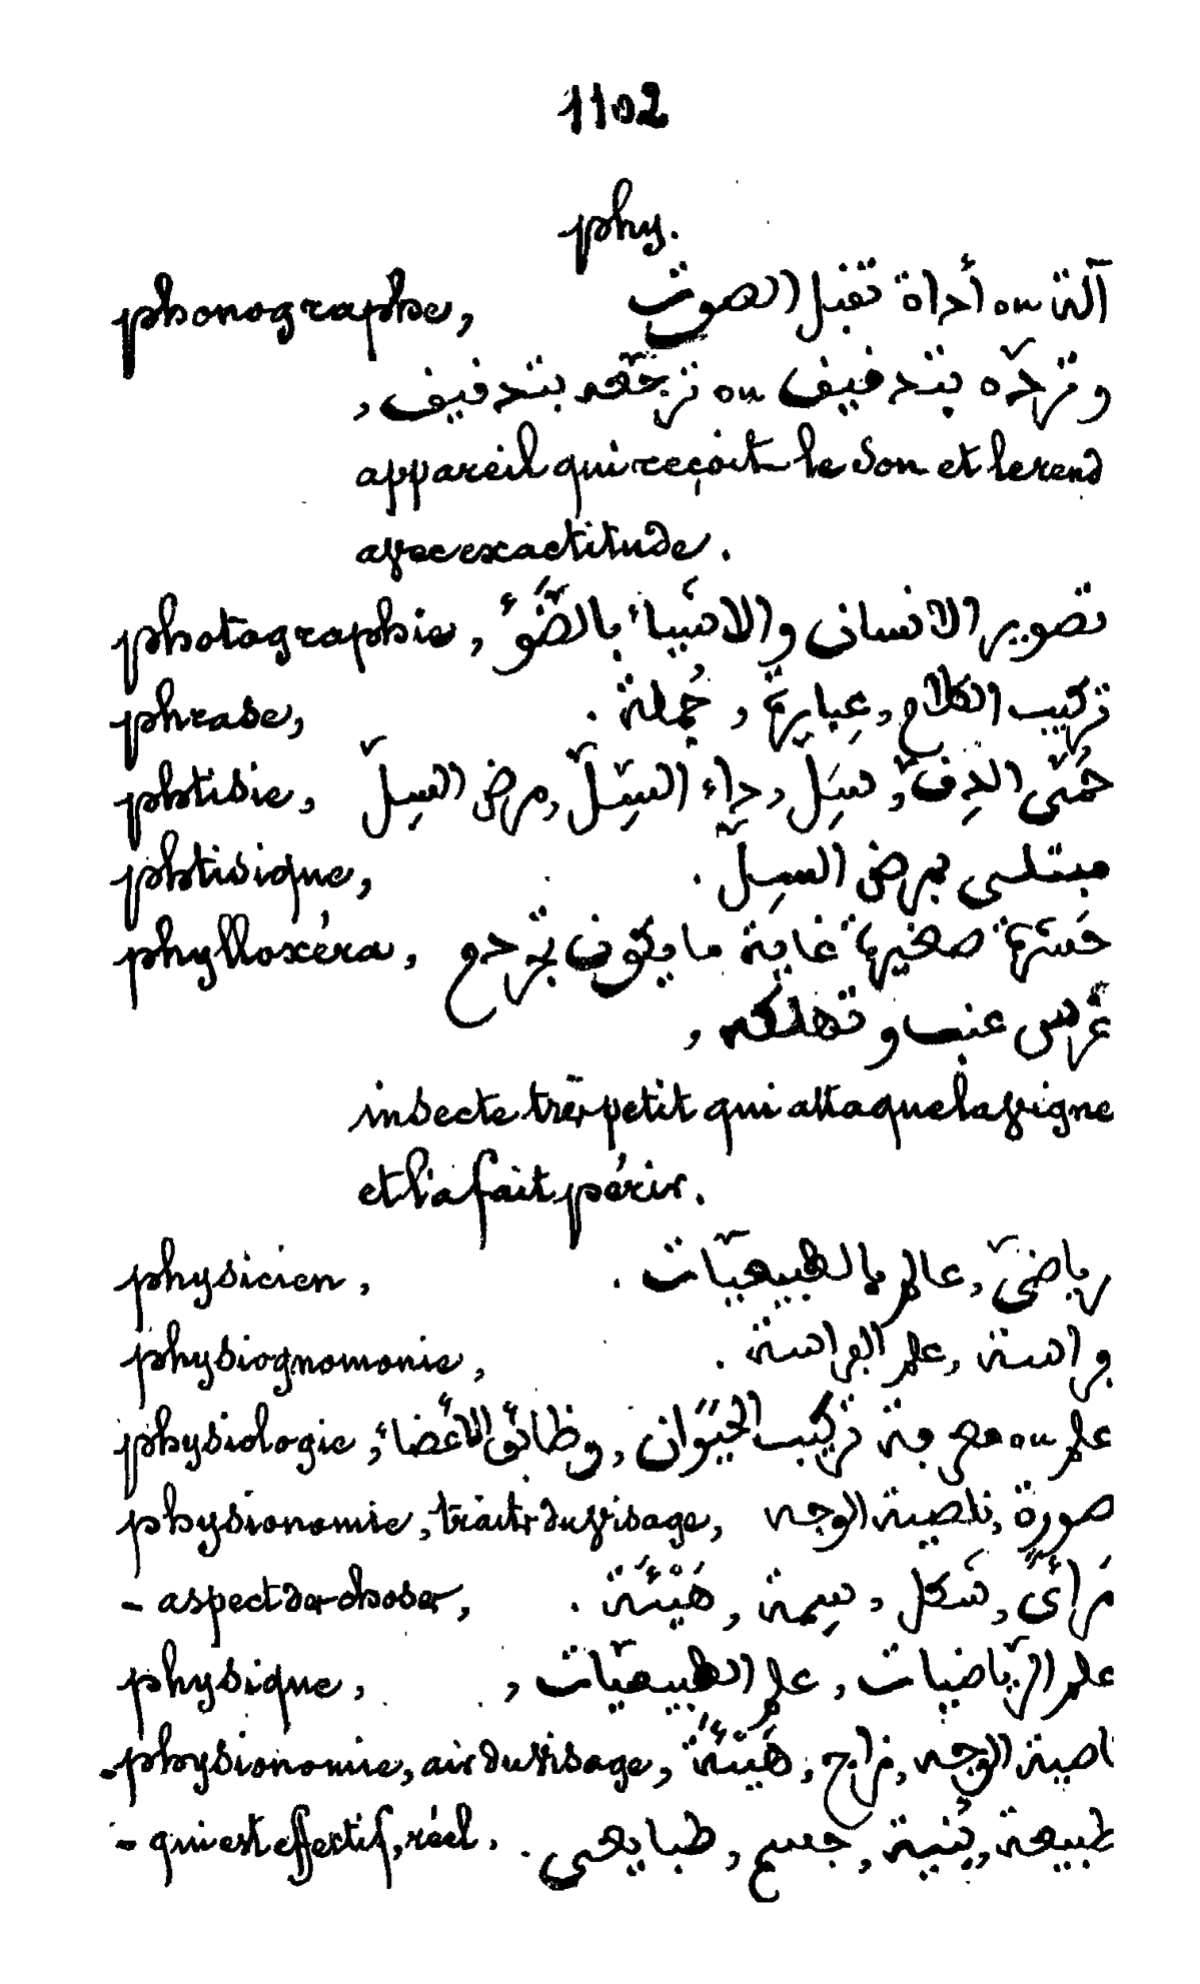 1102
phy.
phonographe, آلة ou أداة تقبل الصوت
وتردّه بتدقيق ou ترجّعه بتدقيق,
appareil qui reçoit le son et le rend
avec exactitude.
photographie, تصوير الانسان والاشياء بالضَّوء
phrase, تركيب الكلام, عِبارة, جُملة.
phtisie, حُمَّى الدِقّ, سِلّ, داء السِّلّ, مرض السِلّ
phtisique, مبتلى بمرض السِلّ.
phylloxéra, حَشَرة صغيرة غاية ما يكون تجرح
غرس عنب وتهلكه,
insecte très petit qui attaque la vigne
et l'a fait périr.
physicien, رياضيّ, عالم بالطبيعيّات.
physiognomonie, فراسة, علم الفراسة.
physiologie, علم ou معرفة تركيب الحَيَوان, وظائف الأعْضاء,
physionomie, traits du visage, صورة, ناصية الوجه
- aspect des choses, مَرأىً, شَكل, سِمة, هَيْئة.
physique, علم الرّياضيات, علم الطبيعيّات,
- physionomie, air du visage, ناصية الوجه, مزاج, هَيْئة
- qui est effectif, réel. طبيعة, بُنية, جسم, طبايعى.